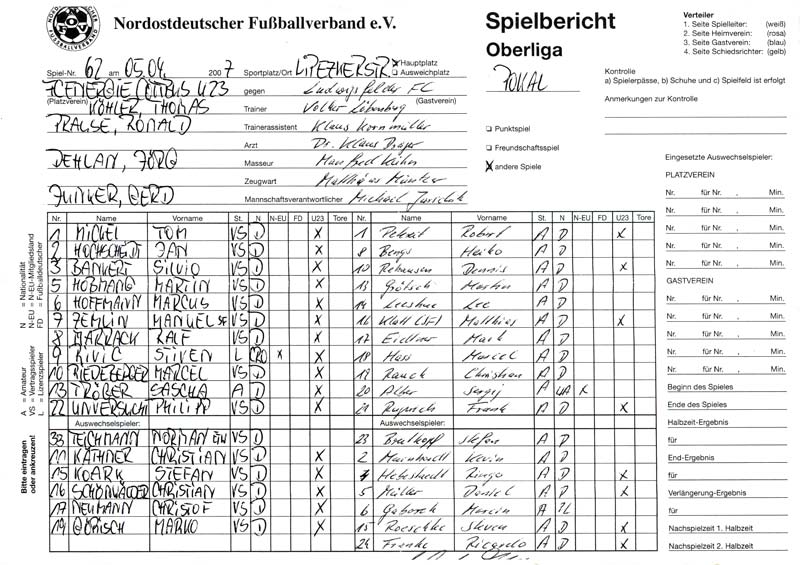 Nordostdeutscher Fußballverband e.V.
Spielbericht
Oberliga
POKAL
Verteiler
1. Seite Spielleiter: (weiß)
2. Seite Heimverein: (rosa)
3. Seite Gastverein: (blau)
4. Seite Schiedsrichter: (gelb)
Kontrolle
a) Spielerpässe, b) Schuhe und c) Spielfeld ist erfolgt
Anmerkungen zur Kontrolle
Spiel-Nr. 62 am 05.04. 2007 Sportplatz/Ort LIPEZKERSTR. X Hauptplatz
Ausweichplatz
FC ENERGIE COTTBUS U23 gegen Ludwigsfelder FC
(Platzverein) (Gastverein)
KÖHLER, THOMAS Trainer Volker Löbenberg
PRAUSE, RONALD Trainerassistent Klaus Kornmüller
Arzt Dr. Klaus
DEHLAN, JÖRG Masseur Manfred
Zeugwart Matthias
JUNKER, GERD Mannschaftsverantwortlicher Michael
Punktspiel
Freundschaftsspiel
X andere Spiele
Nr. Name Vorname St. N N-EU FD U23 Tore Nr. Name Vorname St. N N-EU FD U23 Tore
1 MICKEL TOM VS D X 1 Robert A D X
2 HOCHSCHEIDT JAN VS D X 8 Bengs Heiko A D
3 BANKERT SILVIO VS D X 10 Rehausen Dennis A D X
5 HOßMANG MARTIN VS D X 13 Martin A D
6 HOFFMANN MARCUS VS D X 14 A D
7 ZEMLIN MANUEL SF VS D X 16 Klatt (SF) Matthias A D X
8 MARRACK RALF VS D X 17 Mark A D
9 RIVIC STIVEN L CRO X X 18 Hass Marcel A D
10 RIEDEBERGER MARCEL VS D X 19 Rauch Christian A D
13 TRÖGER SASCHA A D X 20 Sergij A UA X
22 UNVERSUCHT PHILIPP VS D X 21 Ruprech Frank A D X
Auswechselspieler: Auswechselspieler:
33 TEICHMANN NORMAN ETW VS D 23 Breitkopf Stefan A D
11 KATHNER CHRISTIAN VS D X 2 Kevin A D
15 KOARK STEFAN VS D X Ringo A D X
16 SCHÖNWÄLDER CHRISTIAN VS D X 5 Müller Daniel A D X
17 NEUMANN CHRISTOF VS D X 6 Gaborek Marcin A PL
19 GÖRISCH MARKO VS D X 15 Roeschke Steven A D X
24 Franke Ricardo A D X
N = Nationalität
N-EU = N-EU-Mitgliedsland
FD = Fußballdeutscher
A = Amateur
VS = Vertragsspieler
L = Lizenzspieler
Bitte eintragen
oder ankreuzen!
Eingesetzte Auswechselspieler:
PLATZVEREIN
Nr. für Nr. , Min.
Nr. für Nr. , Min.
Nr. für Nr. , Min.
GASTVEREIN
Nr. für Nr. , Min.
Nr. für Nr. , Min.
Nr. für Nr. , Min.
Nr. für Nr. , Min.
Nr. für Nr. , Min.
Nr. für Nr. , Min.
Beginn des Spieles
Ende des Spieles
Halbzeit-Ergebnis
für
End-Ergebnis
für
Verlängerung-Ergebnis
für
Nachspielzeit 1. Halbzeit
Nachspielzeit 2. Halbzeit